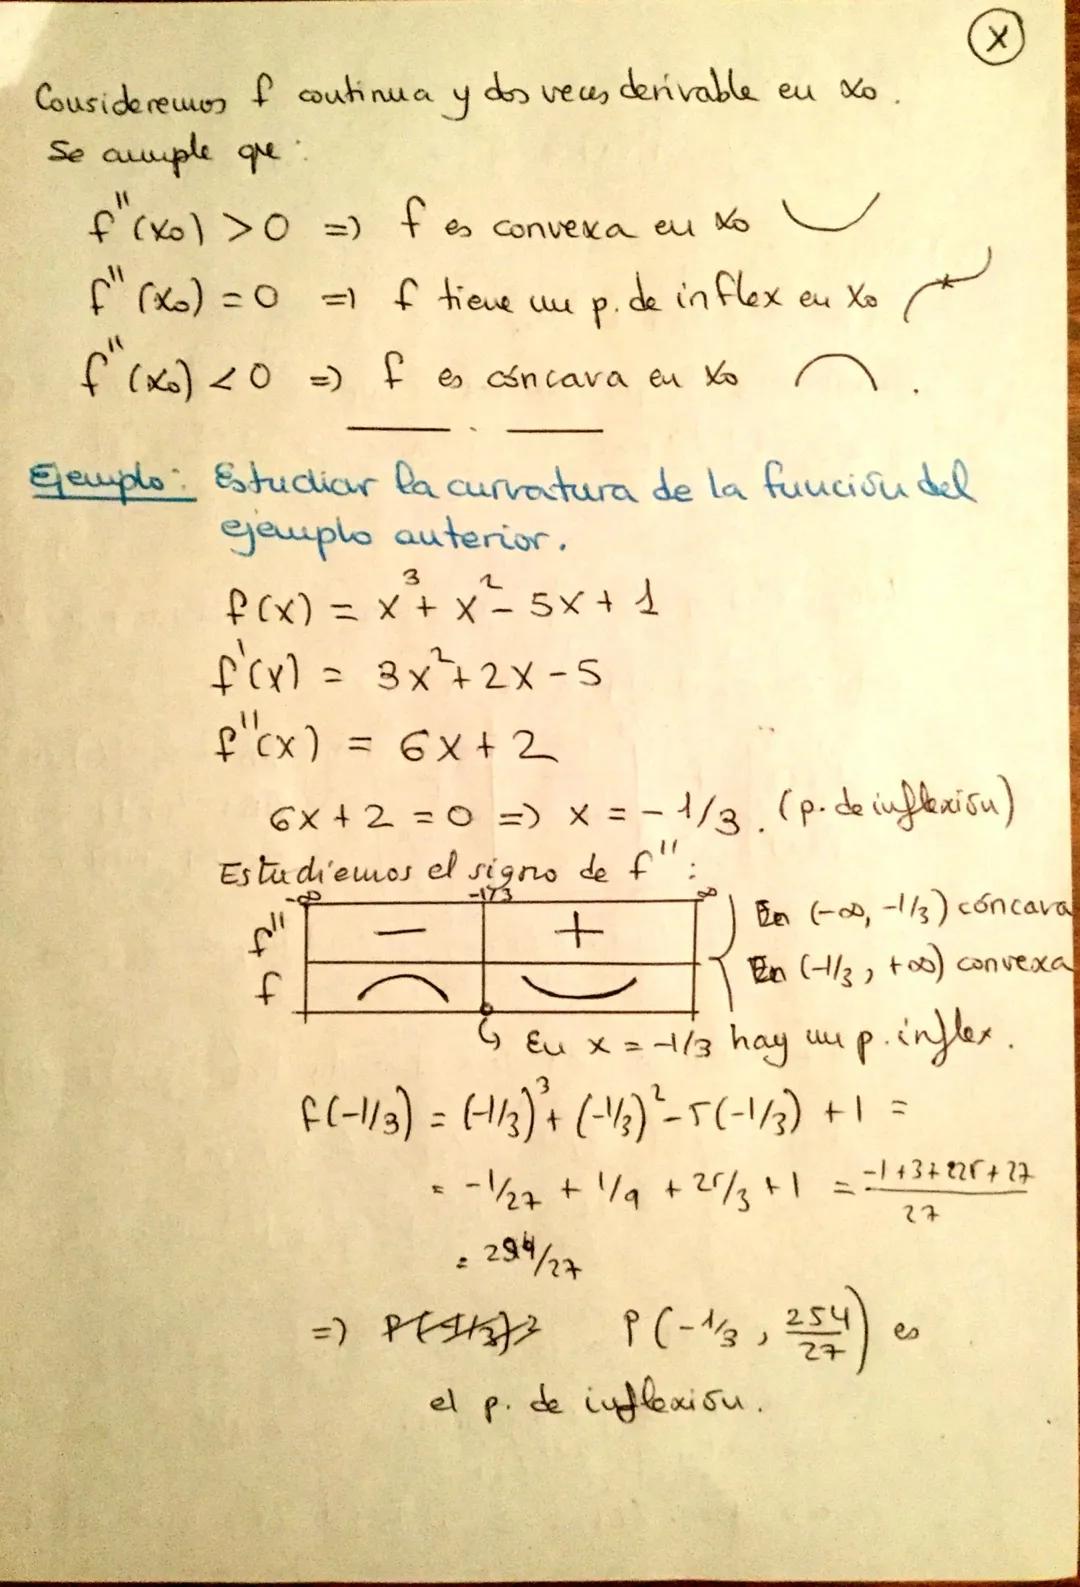 X
Consideremos f continua y dos veces derivable en x₀.
Se cumple que:
f''(x₀) > 0 => f es convexa en x₀
f''(x₀) = 0 => f tiene un p. de inflex en x₀
f''(x₀) < 0 => f es cóncava en x₀ .
Ejemplo: Estudiar la curvatura de la función del
ejemplo anterior.
f(x) = x³ + x² - 5x + 1
f'(x) = 3x² + 2x - 5
f''(x) = 6x + 2
6x + 2 = 0 => x = -1/3. (p. de inflexión)
Estudiemos el signo de f'':
-∞ -1/3 ∞
f'' - + En (-∞, -1/3) cóncava
f En (-1/3, +∞) convexa
En x = -1/3 hay un p. inflex.
f(-1/3) = (-1/3)³ + (-1/3)² - 5(-1/3) + 1 =
= -1/27 + 1/9 + 25/3 + 1 = (-1+3+225+27)/27
= 254/27
=> P(-1/3, 254/27) es
el p. de inflexión.